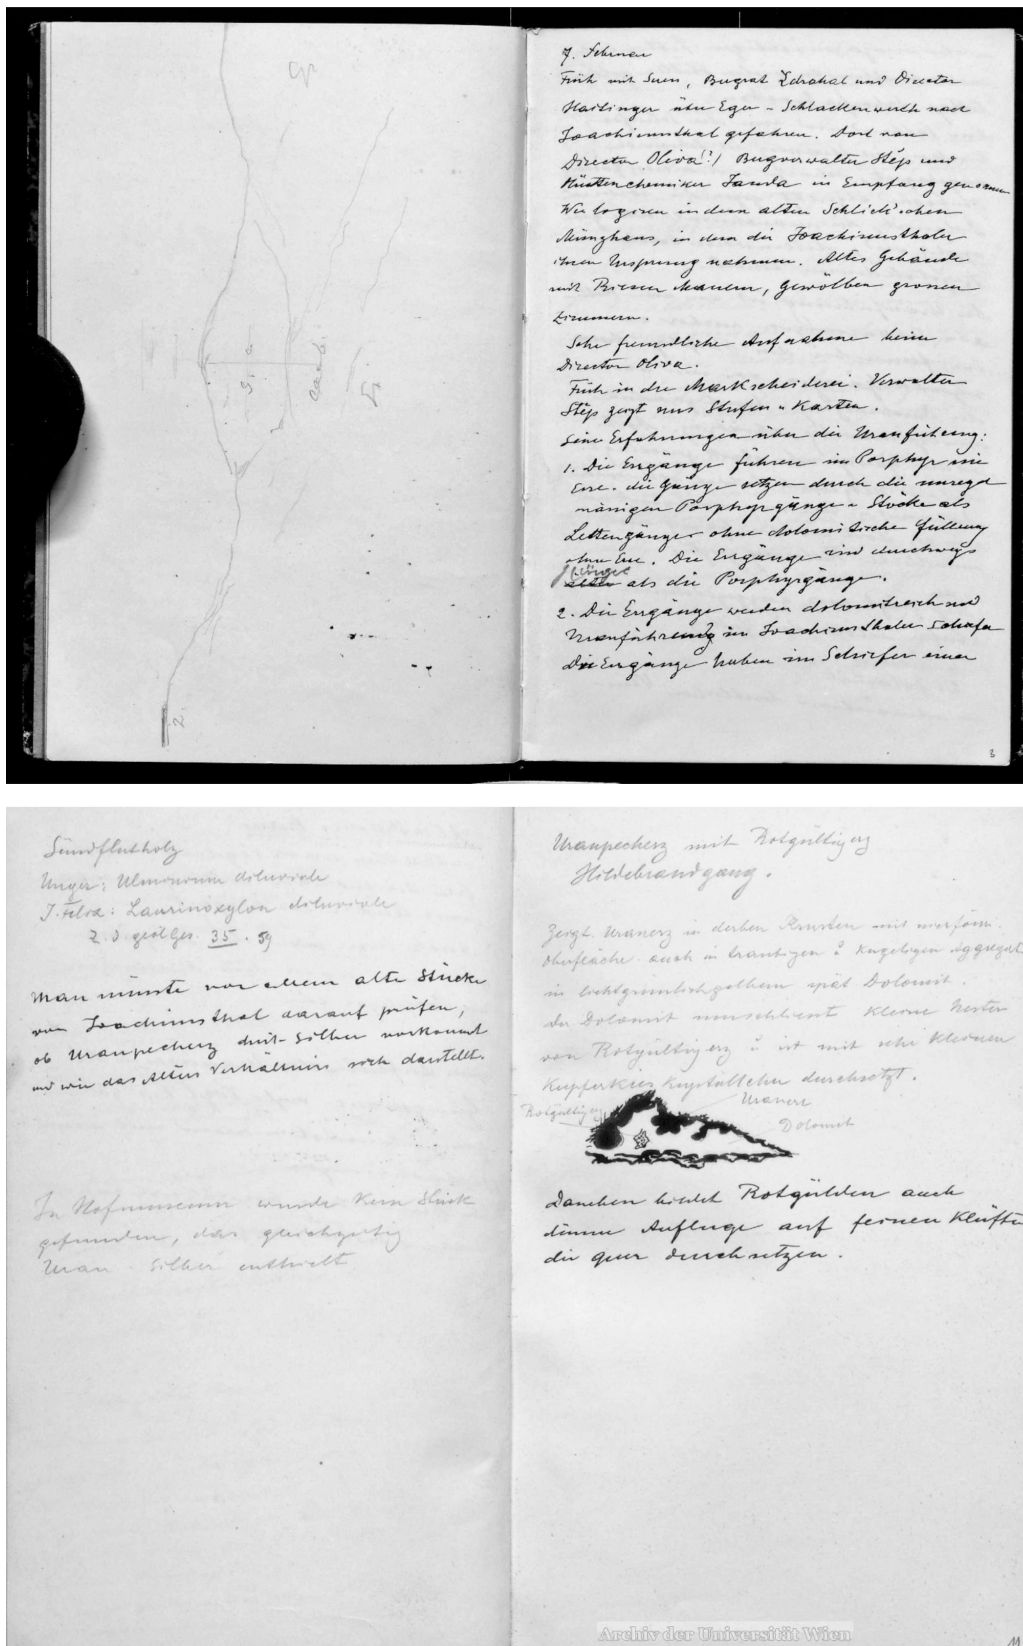 7. Februar
Früh mit Suess, Bergrat Zdrahal und Director
Haitinger über Eger - Schlackenwerth nach
Joachimsthal gefahren. Dort von
Director Oliva (?) Bergverwalter Stěp und
Hüttenchemiker Janda in Empfang genommen
Wir logiren in dem alten Schlick'schen
Münzhaus, in dem die Joachimsthaler
ihren Ursprung nahmen. Altes Gebäude
mit Riesen Mauern, Gewölben grossen
Zimmern.
Sehr freundliche Aufnahme beim
Director Oliva.
Früh in der Markscheiderei. Verwalter
Stěp zeigt uns Stufen u Karten.
Seine Erfahrungen über die Uranführung:
1. Die Erzgänge führen im Porphyr nie
Erz. die Gänge setzen durch die unregel
mässigen Porphyrgänge u Stöcke als
Lettengänge ohne dolomitische Füllung
ohne Erz. Die Erzgänge sind durchwegs
jünger
älter als die Porphyrgänge.
2. Die Erzgänge werden dolomitreich und
Uranführend im Joachimsthaler Schiefer
Die Erzgänge haben im Schiefer einen
3
g
z.
Sündflutholz
Unger: Ulminium diluviale
J. Felix: Laurinoxylon diluviale
Z. d. geol Ges. 35. 59
Man müsste vor allem alte Stücke
von Joachimsthal darauf prüfen,
ob Uranpecherz mit Silber vorkommt
und wie das Alters Verhältnis sich darstellt.
Im Hofmuseum wurde kein Stück
gefunden, das gleichzeitig
Uran Silber enthielt
Uranpecherz mit Rotgültigerz
Hildebrandgang.
Zeigt Uranerz in derben Krusten mit nierförmi.
Oberfläche auch in traubigen u kugeligen Aggregat
in lichtgrünlichgelbem spät Dolomit.
der Dolomit umschliesst kleine Nester
von Rotgültigerz u ist mit sehr kleinen
Kupferkies Kryställchen durchsetzt.
Rotgültigerz
Uranerz
Dolomit
Daneben bildet Rotgülden auch
dünne Anflüge auf feinen Klüften
die quer durchsetzen.
Archiv der Universität Wien